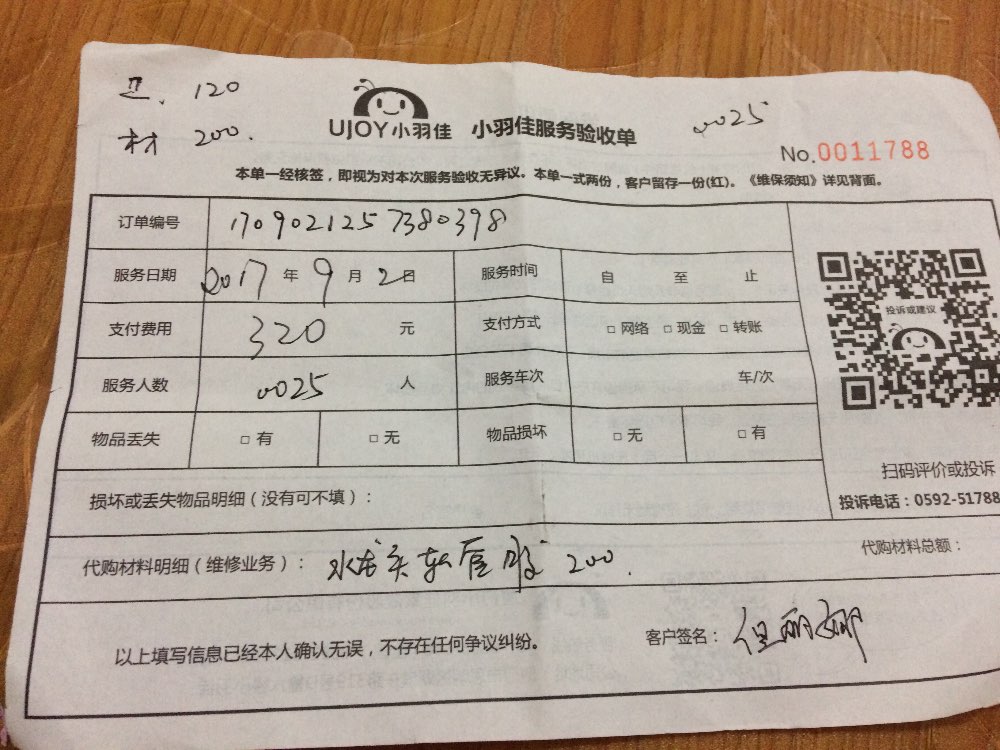 工、120
材 200.
UJOY小羽佳 小羽佳服务验收单
0025
No.0011788
本单一经核签，即视为对本次服务验收无异议。本单一式两份，客户留存一份(红)。《维保须知》详见背面。
订单编号 1709021257380398
服务日期 2017年9月2日 服务时间 自 至 止
支付费用 320 元 支付方式 □ 网络 □ 现金 □ 转账
服务人数 0025 人 服务车次 车/次
物品丢失 □ 有 □ 无 物品损坏 □ 无 □ 有
投诉或建议
扫码评价或投诉
投诉电话：0592-51788
损坏或丢失物品明细（没有可不填）：
代购材料明细（维修业务）： 水龙头软管胶 200.
代购材料总额：
以上填写信息已经本人确认无误，不存在任何争议纠纷。
客户签名：但丽娜